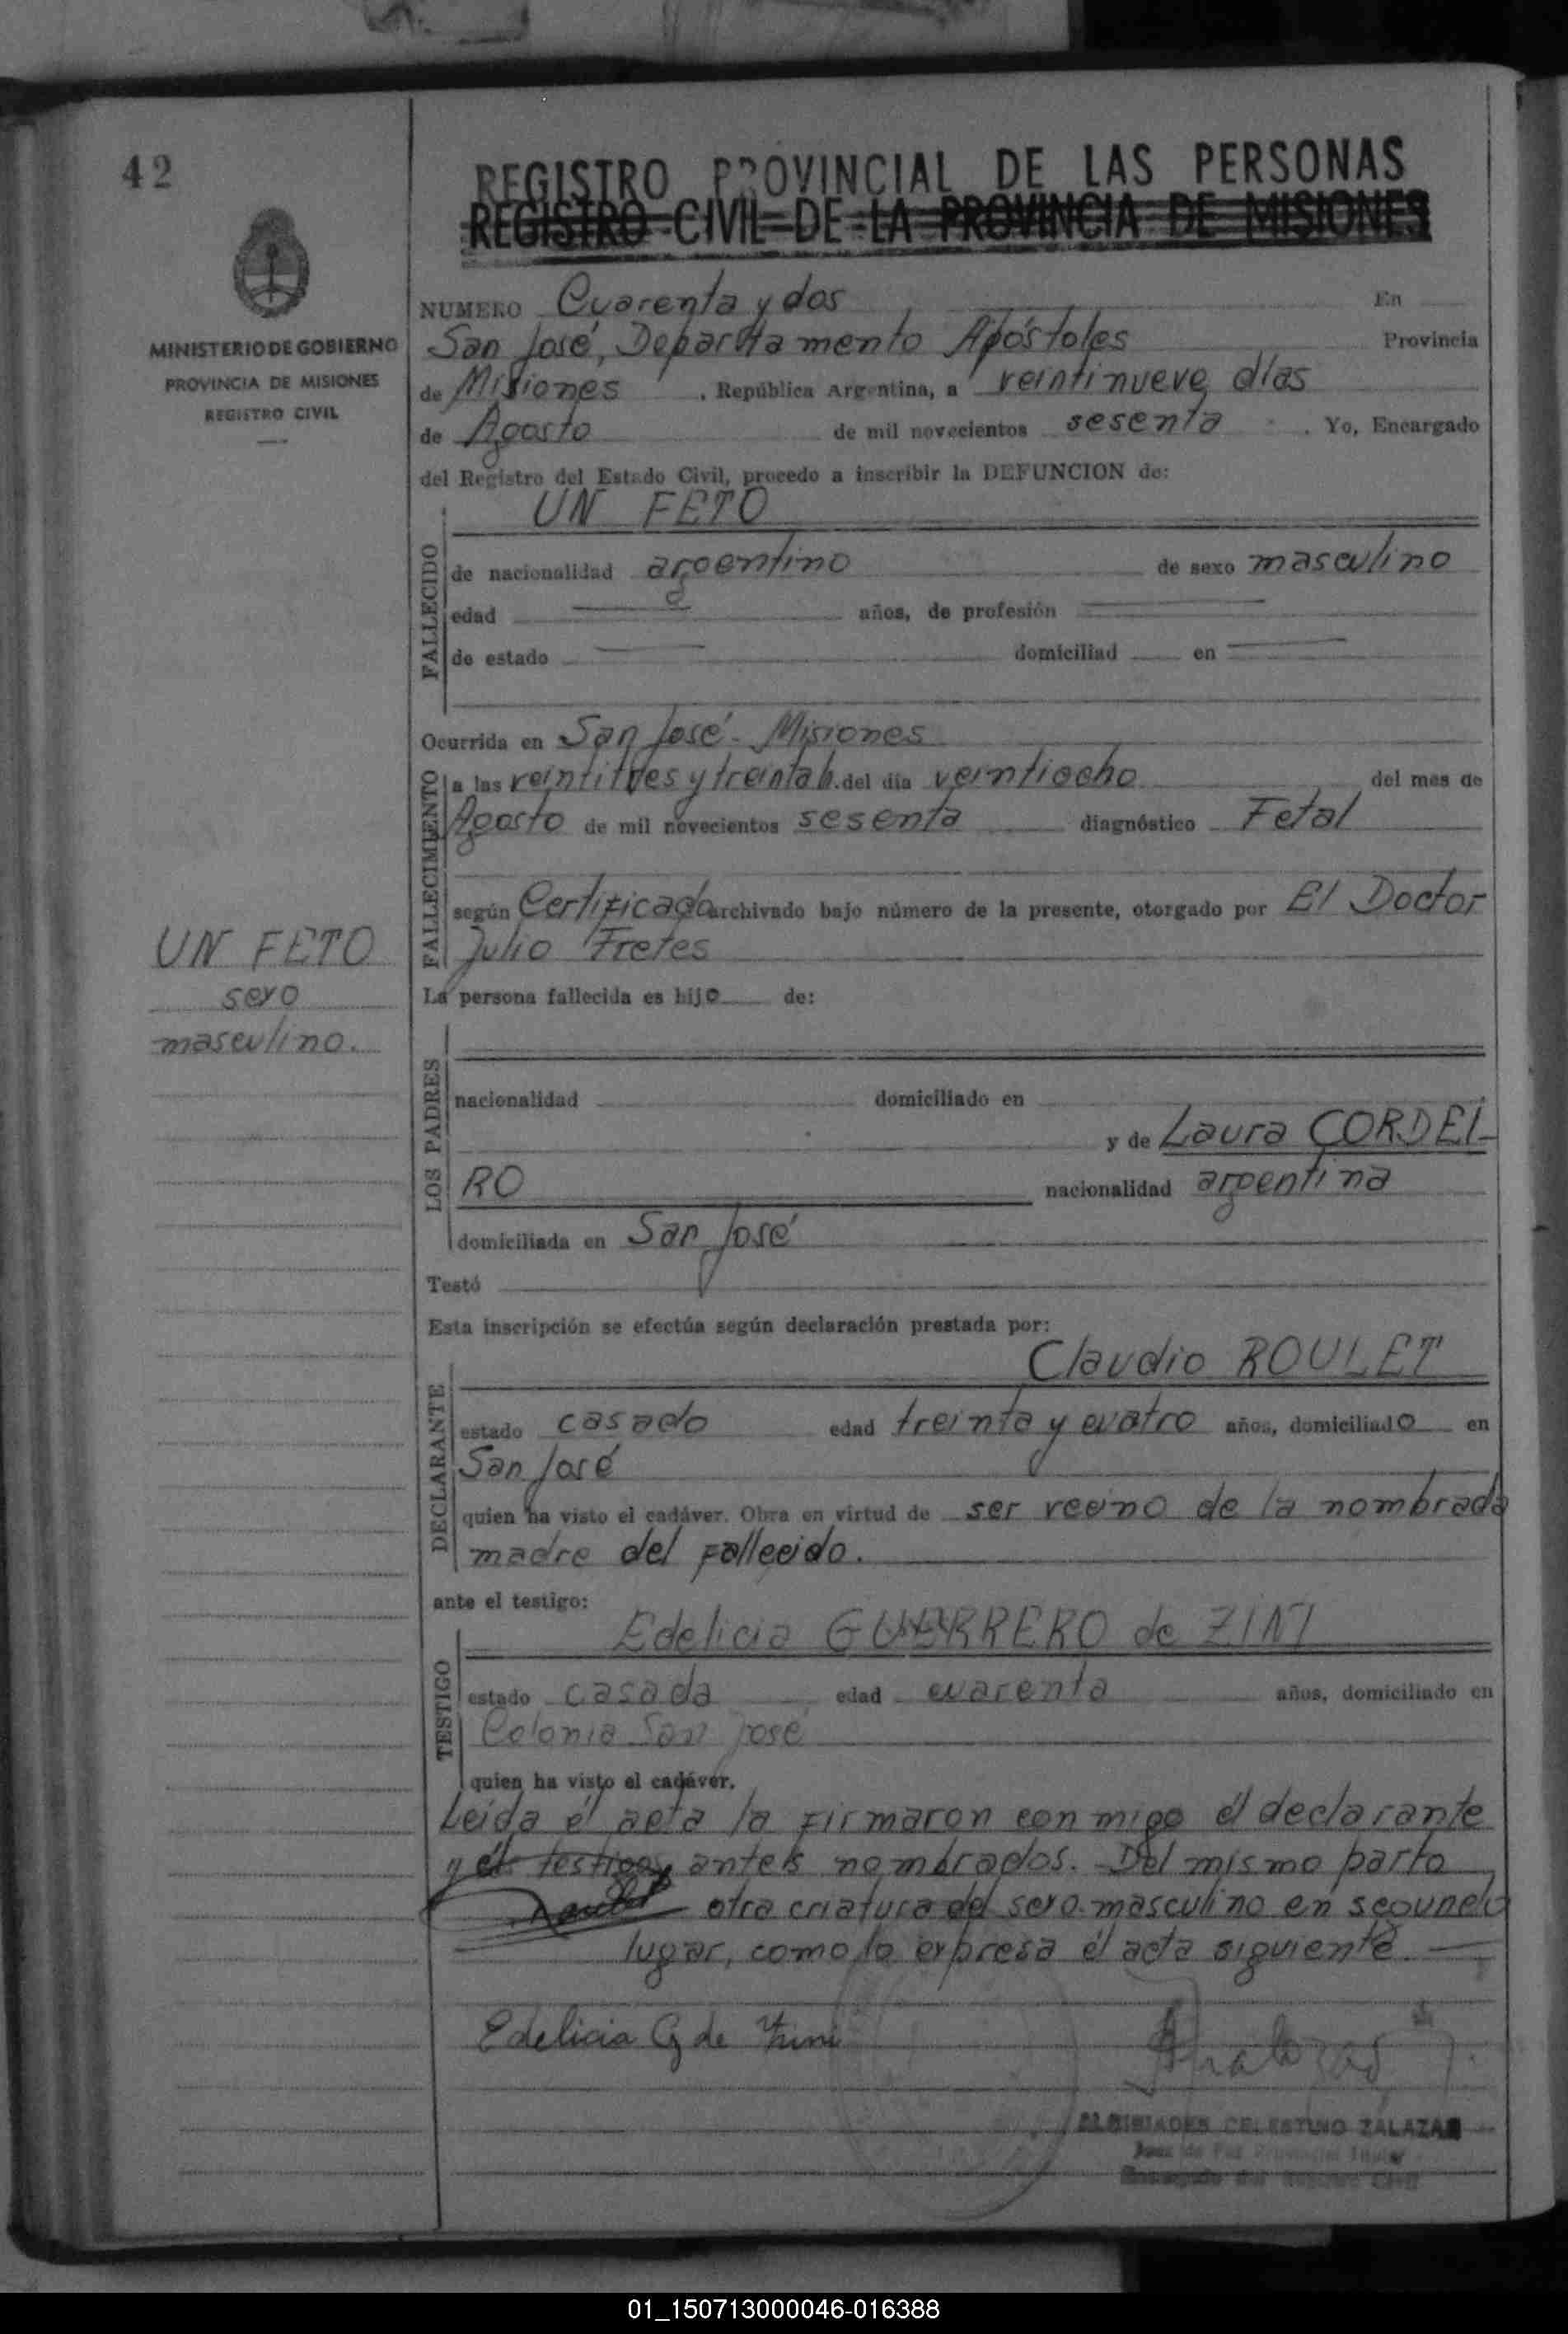 42
REGISTRO PROVINCIAL DE LAS PERSONAS
REGISTRO CIVIL DE LA PROVINCIA DE MISIONES
MINISTERIO DE GOBIERNO
PROVINCIA DE MISIONES
REGISTRO CIVIL
NUMERO Cuarenta y dos En
San José, Departamento Apóstoles Provincia
de Misiones, República Argentina, a veintinueve días
de Agosto de mil novecientos sesenta. Yo, Encargado
del Registro del Estado Civil, procedo a inscribir la DEFUNCION de:
UN FETO
FALLECIDO
de nacionalidad argentino de sexo masculino
edad años, de profesión
de estado domiciliad en
Ocurrida en San José - Misiones
FALLECIMIENTO
a las veintitres y treinta h. del día veintiocho del mes de
Agosto de mil novecientos sesenta diagnóstico Fetal
según Certificado archivado bajo número de la presente, otorgado por El Doctor
Julio Fretes
UN FETO
sexo
masculino.
La persona fallecida es hijo de:
LOS PADRES
nacionalidad domiciliado en
y de Laura CORDEI-
RO nacionalidad argentina
domiciliada en San José
Testó
Esta inscripción se efectúa según declaración prestada por:
Claudio ROULET
DECLARANTE
estado casado edad treinta y cuatro años, domiciliado en
San José
quien ha visto el cadáver. Obra en virtud de ser vecino de la nombrada
madre del fallecido.
ante el testigo:
Edelicia GUERRERO de ZINI
TESTIGO
estado casada edad cuarenta años, domiciliado en
Colonia San José
quien ha visto el cadáver.
Leída él acta la firmaron conmigo él declarante
y él testigo, antes nombrados. Del mismo parto
otra criatura del sexo masculino en segundo
lugar, como lo expresa él acta siguiente
Edelicia G de Zini
ALCIBIADES CELESTINO ZALAZAR
Juez de Paz
Encargado del Registro Civil
01_150713000046-016388